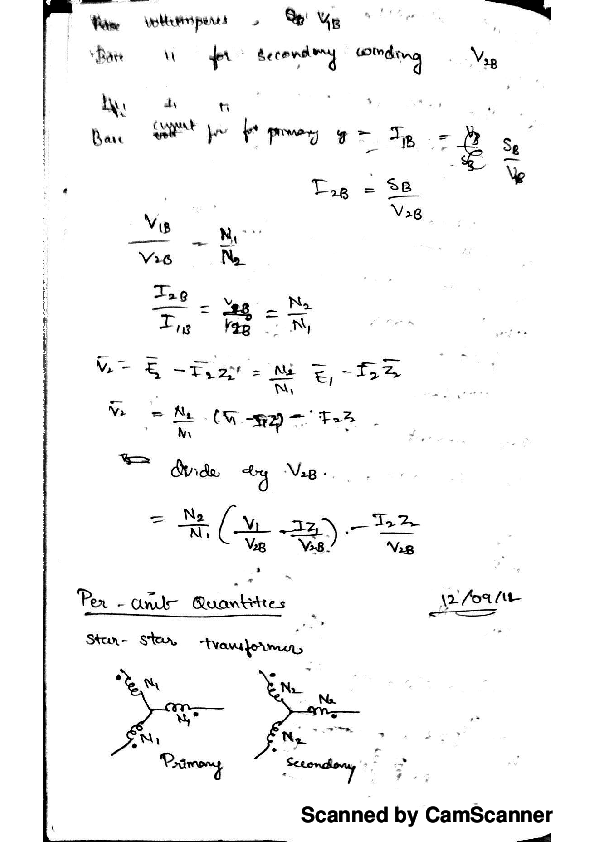 voltamperes, SB V1B
Base " for secondary winding V2B
Base current for primary = I1B = SB/VB
I2B = SB/V2B
V1B/V2B = N1/N2
I2B/I1B = V1B/V2B = N2/N1
V̄2 = Ē2 - Ī2 Z2 = N2/N1 Ē1 - Ī2 Z̄2
V̄2 = N2/N1 (V̄1 - I1Z1) - I2Z2
Divide by V2B.
= N2/N1 (V1/V2B - IZ1/V2B) - I2Z2/V2B
Per-unit Quantities 12/09/12
Star-star transformer
N1 N1 N1 N2 N2 N2
Primary Secondary
Scanned by CamScanner